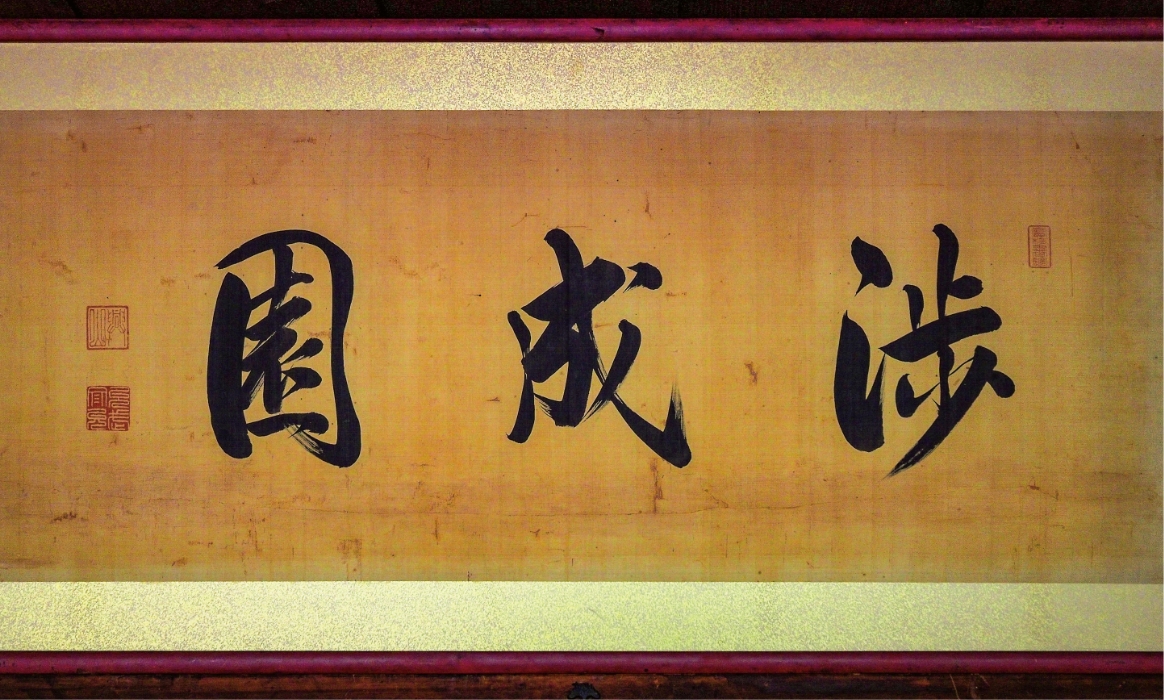 涉成園